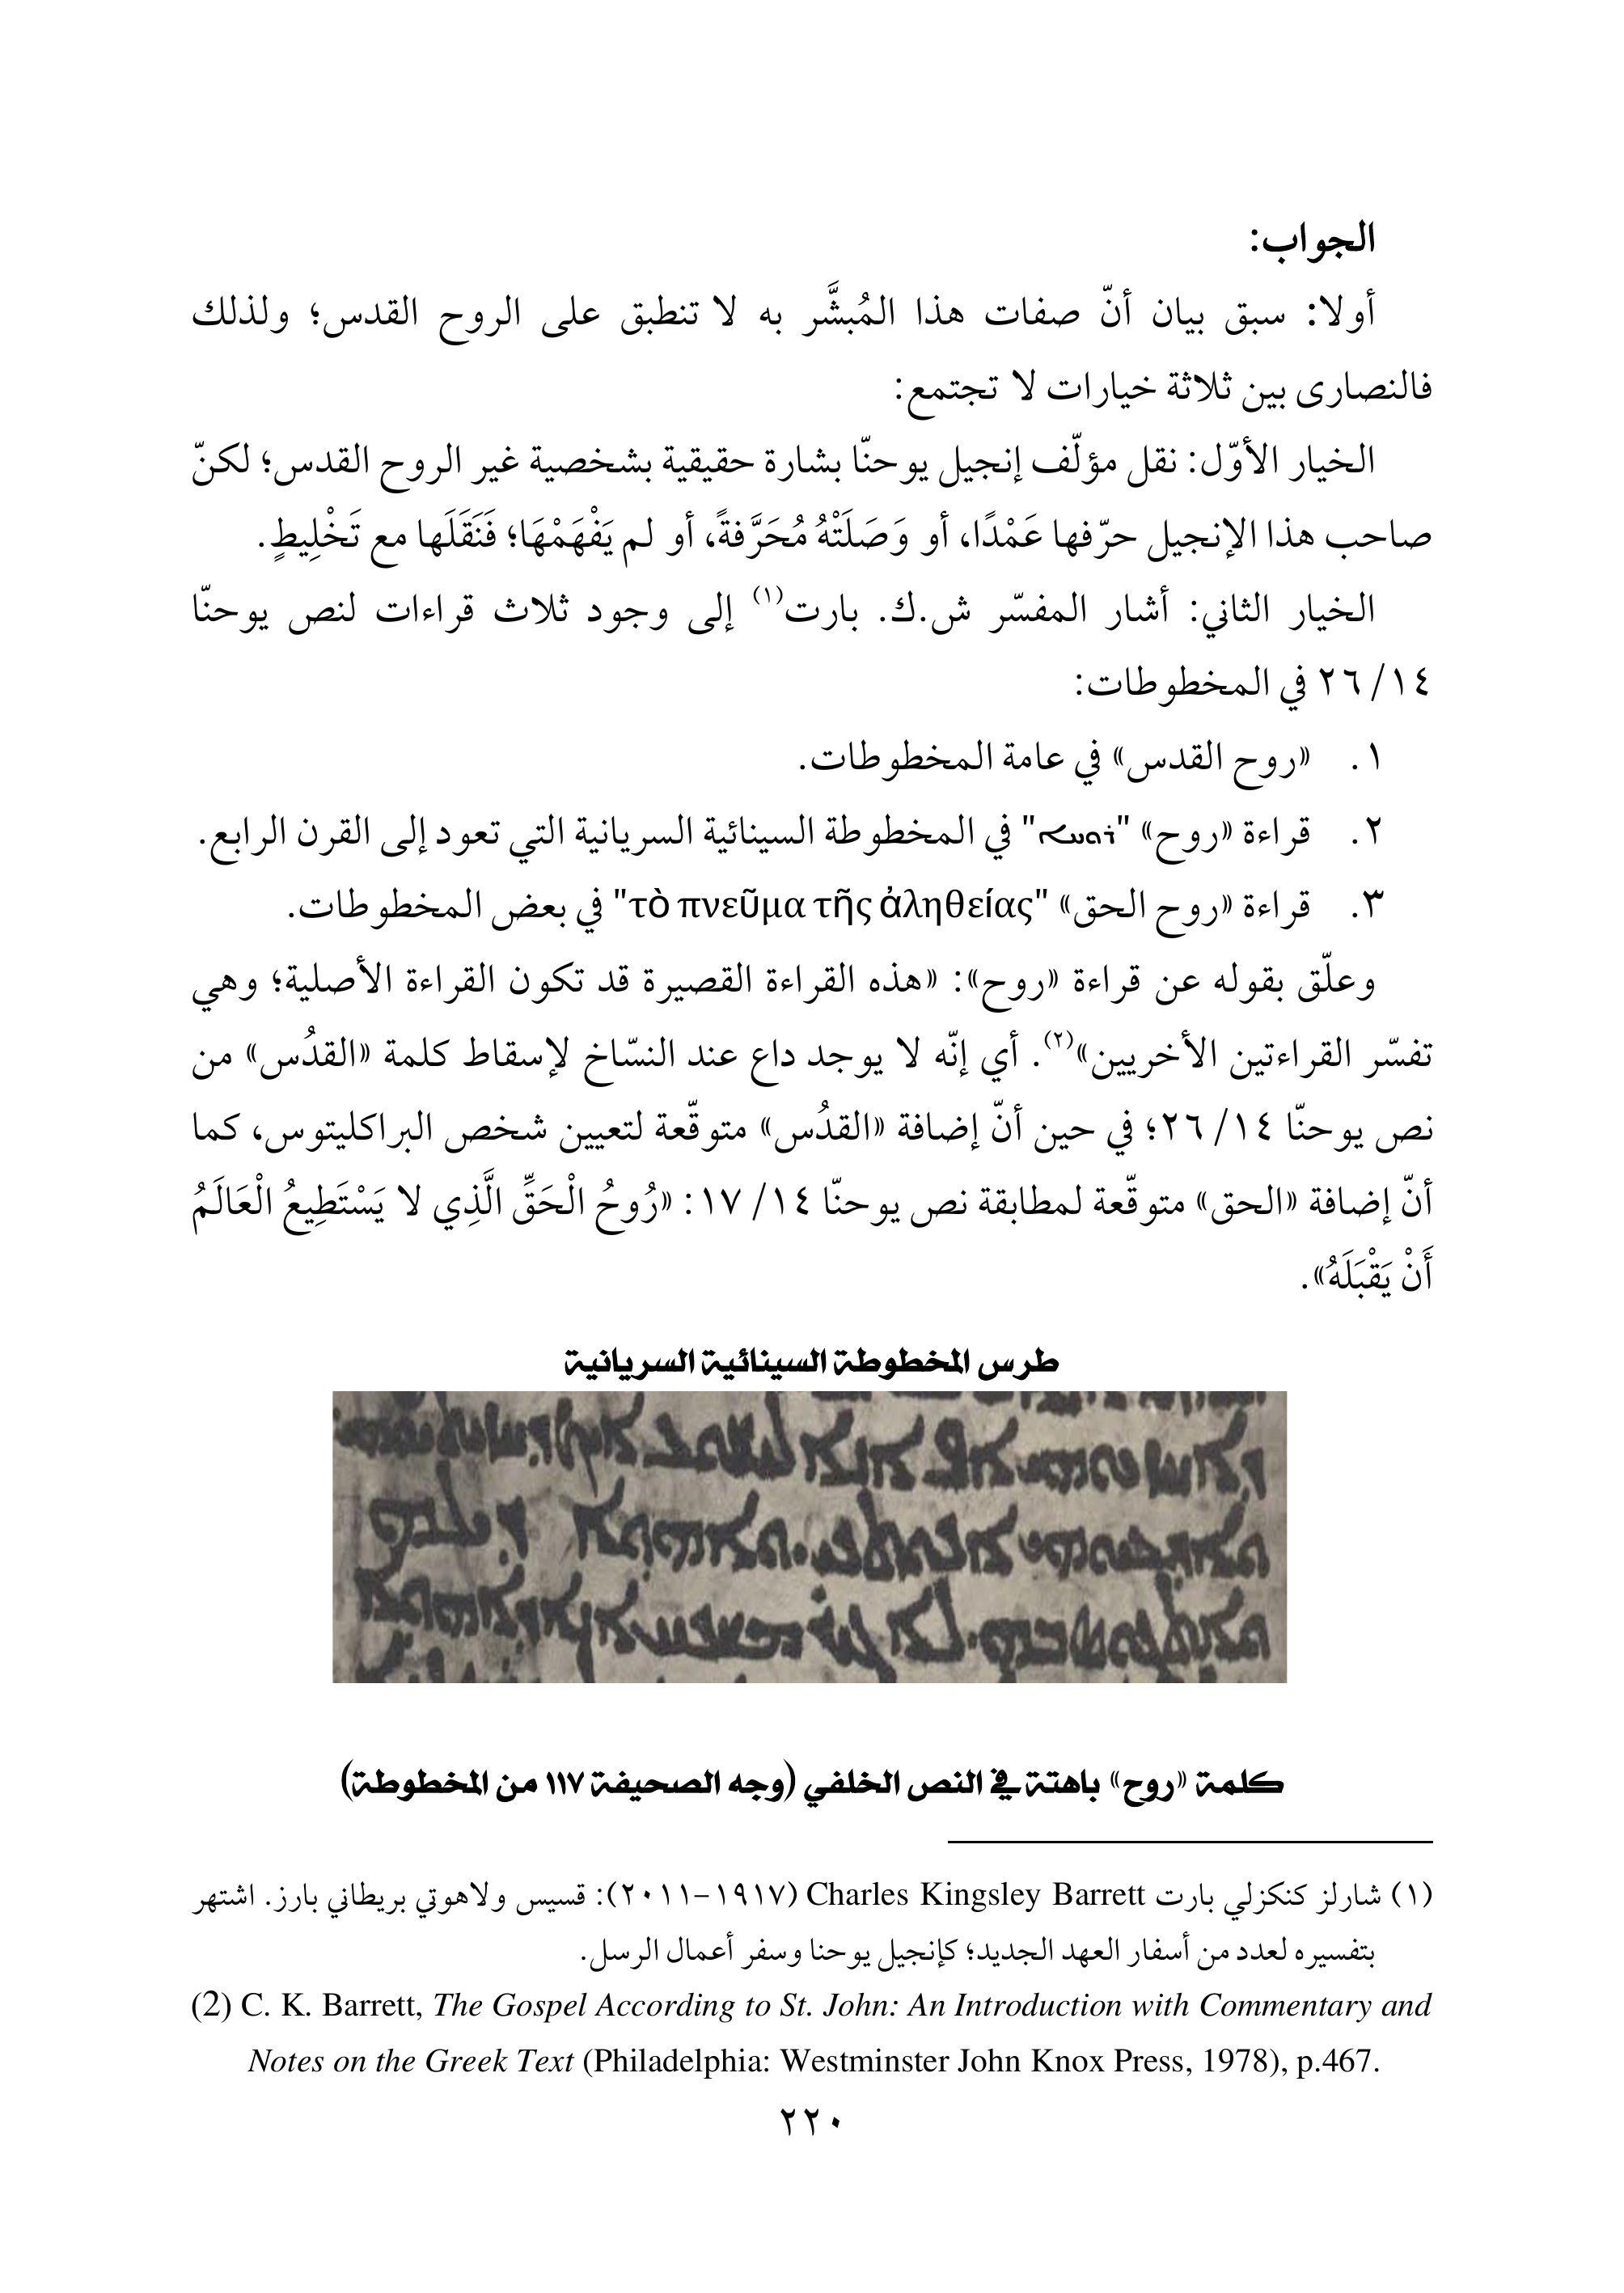 الجواب:
أولا: سبق بيان أنّ صفات هذا المُبشَّر به لا تنطبق على الروح القدس؛ ولذلك
فالنصارى بين ثلاثة خيارات لا تجتمع:
الخيار الأوّل: نقل مؤلّف إنجيل يوحنّا بشارة حقيقية بشخصية غير الروح القدس؛ لكنّ
صاحب هذا الإنجيل حرّفها عَمْدًا، أو وَصَلَتْهُ مُحَرَّفةً، أو لم يَفْهَمْهَا؛ فَنَقَلَها مع تَخْلِيطٍ.
الخيار الثاني: أشار المفسّر ش.ك. بارت(١) إلى وجود ثلاث قراءات لنص يوحنّا
١٤/ ٢٦ في المخطوطات:
١. «روح القدس» في عامة المخطوطات.
٢. قراءة «روح» "ܪܘܚܐ" في المخطوطة السينائية السريانية التي تعود إلى القرن الرابع.
٣. قراءة «روح الحق» "τὸ πνεῦμα τῆς ἀληθείας" في بعض المخطوطات.
وعلّق بقوله عن قراءة «روح»: «هذه القراءة القصيرة قد تكون القراءة الأصلية؛ وهي
تفسّر القراءتين الأخريين»(٢). أي إنّه لا يوجد داع عند النسّاخ لإسقاط كلمة «القدُس» من
نص يوحنّا ١٤/ ٢٦؛ في حين أنّ إضافة «القدُس» متوقّعة لتعيين شخص البراكليتوس، كما
أنّ إضافة «الحق» متوقّعة لمطابقة نص يوحنّا ١٤/ ١٧: «رُوحُ الْحَقِّ الَّذِي لا يَسْتَطِيعُ الْعَالَمُ
أَنْ يَقْبَلَهُ».
طرس المخطوطة السينائية السريانية
كلمة «روح» باهتة في النص الخلفي (وجه الصحيفة ١١٧ من المخطوطة)
(١) شارلز كنكزلي بارت Charles Kingsley Barrett (١٩١٧-٢٠١١): قسيس ولاهوتي بريطاني بارز. اشتهر
بتفسيره لعدد من أسفار العهد الجديد؛ كإنجيل يوحنا وسفر أعمال الرسل.
(2) C. K. Barrett, The Gospel According to St. John: An Introduction with Commentary and
Notes on the Greek Text (Philadelphia: Westminster John Knox Press, 1978), p.467.
٢٢٠